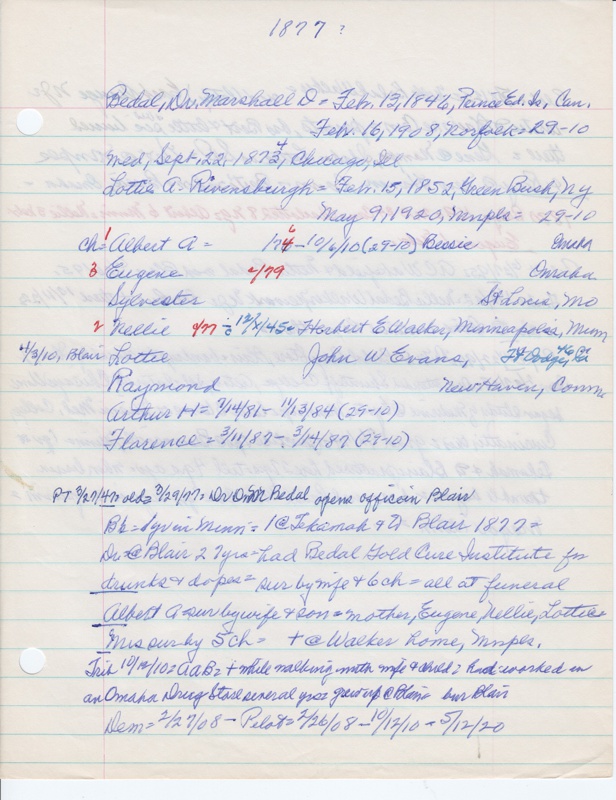 1877 ?
Bedal, Dr. Marshall D = Feb. 13, 1846, Prince Ed. Is, Can.
Feb. 16, 1908, Norfolk = 29-10
Med, Sept. 22, 1873, Chicago, Ill
Lottie A. Rivensburgh = Feb. 15, 1852, Green Bush, Ny
May 9, 1920, Mnpls = 29-10
ch = 1 Albert A = 10/6/10 (29-10) Bessie Omaha
3 Eugene 2/79 Omaha
Sylvester St Louis, Mo
2 Nellie 9/77 = Herbert E Walker, Minneapolis, Minn
4/3/10, Blair Lottie John W Evans, Ft Dodge,
Raymond New Haven, Conn
Arthur H = 7/14/81 - 11/13/84 (29-10)
Florence = 3/11/87 - 3/14/87 (29-10)
PT 3/27/47 = old = 3/29/77 = Dr Bedal opens office in Blair
Bb = 1 yr in Minn = 1 @ Tekamah & D Blair 1877 =
Dr @ Blair 27 yrs = had Bedal Gold Cure Institute for
drunks & dopes = sur by wife & 6 ch = all at funeral
Albert A = sur by wife & son = mother, Eugene, Nellie, Lottie &
Mrs sur by 5 ch = + @ Walker home, Mnpls.
Trib 10/12/10 = AAB = + while walking with wife & child = had worked in
an Omaha Drug Store several yrs = grew up @ Blair = bur Blair
Dem = 2/27/08 - Pilot = 2/26/08 - 10/12/10 - 5/12/20